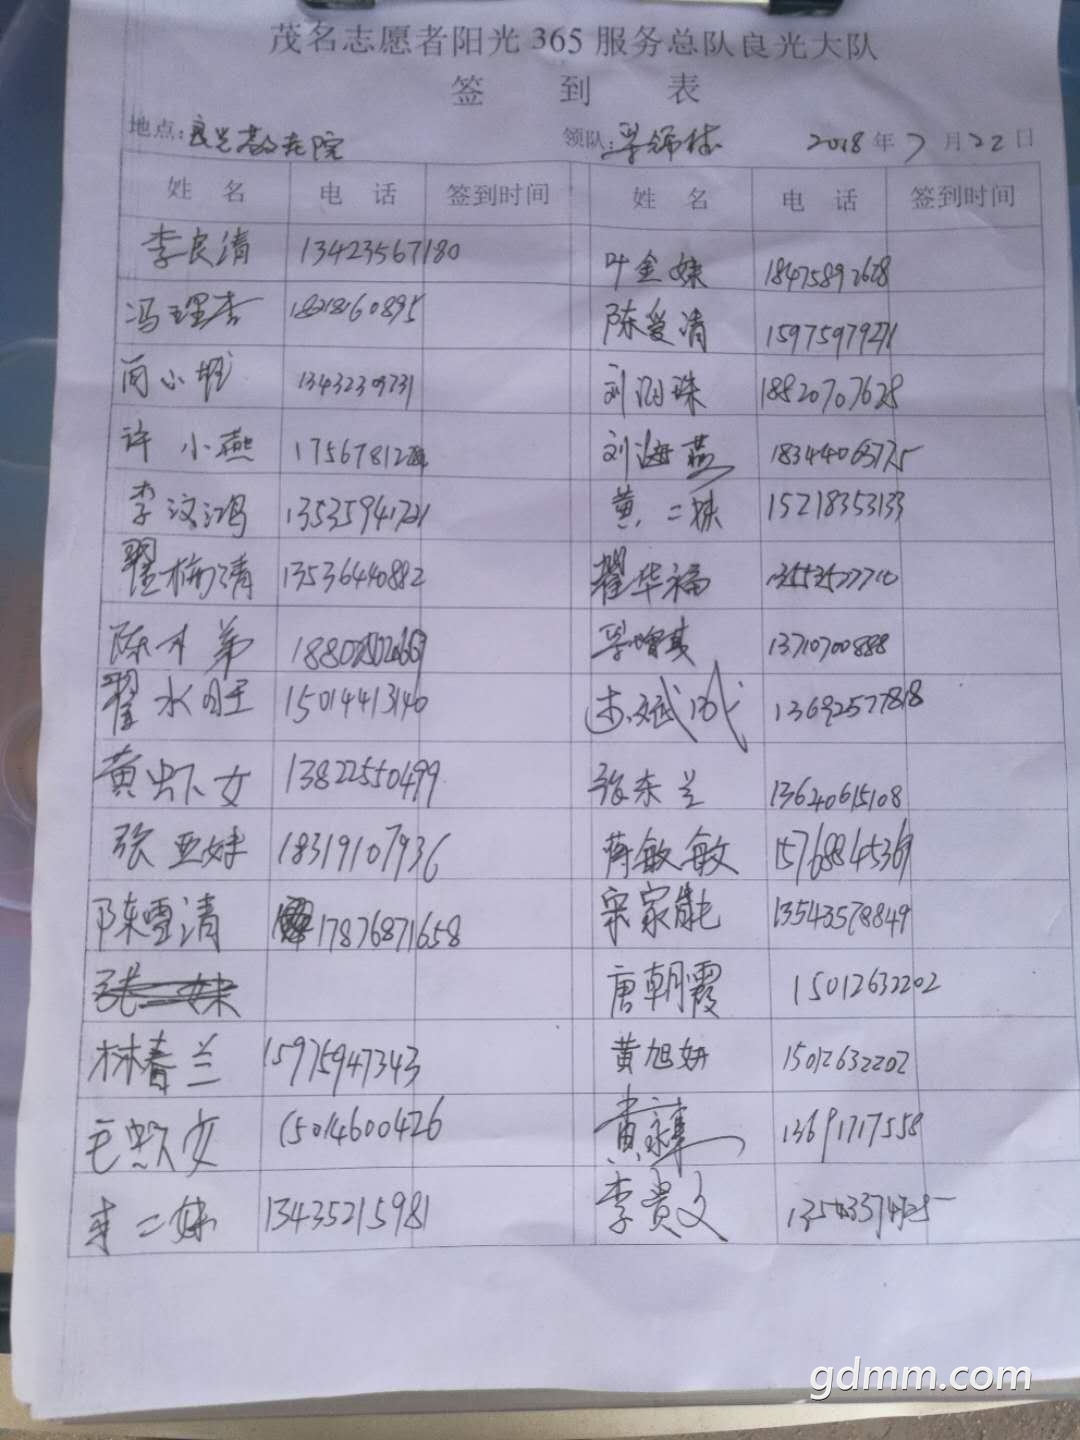 茂名志愿者阳光365服务总队良光大队
签 到 表
地点:良光敬老院 领队: 2018年7月22日
姓 名 电 话 签到时间 姓 名 电 话 签到时间
李良清 13423567180 叶金妹 18475892628
冯理杏 18218160895 陈爱清 15975979271
小 刘 珠 18820707628
许小燕 刘海燕
李汶鸿 13535941721 黄二妹 15218353133
翟梅清 13536440882 翟华福 13553577710
陈 弟 13710700888
翟水旺 15014413140 13692577818
黄虾女 13822550499 张东兰 13640615108
张亚妹 18319107936 蒋敏敏 15768845369
陈雪清 17876871658 宋家能 13543578849
唐朝霞 15012632202
林春兰 15975947343 黄旭妍 15012632202
毛 女 15014600426 黄 13691717558
李二妹 13435215981 李贵文
gdmm.com